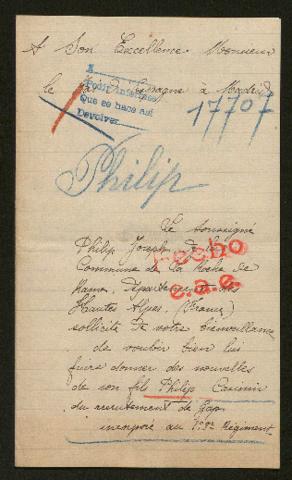 A Son Excellence Monsieur
le Roi d'Espagne à Madrid
A
Que se hace Aut
Devolver
17707
Philip
Le soussigné
Philip Joseph de la
Commune de la Roche de
Rame, Département des
Hautes Alpes, (France)
fecho
e.a.e.
sollicite de votre bienveillance
de vouloir bien lui
faire donner des nouvelles
de son fils Philip Casimir
du recrutement de Gap
incorporé au Régiment